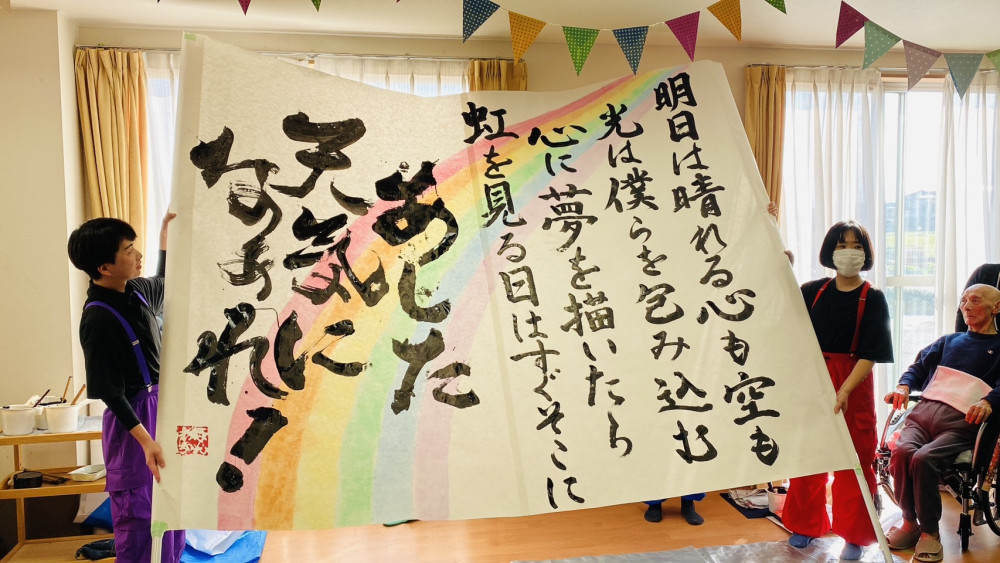 明日は晴れる心も空も
光は僕らを包み込む
心に夢を描いたら
虹を見る日はすぐそこに
あした
天気に
なあれ!